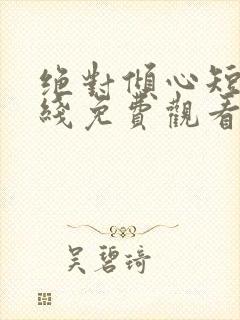 絕對傾心短
綫免費觀看
吳碧琦